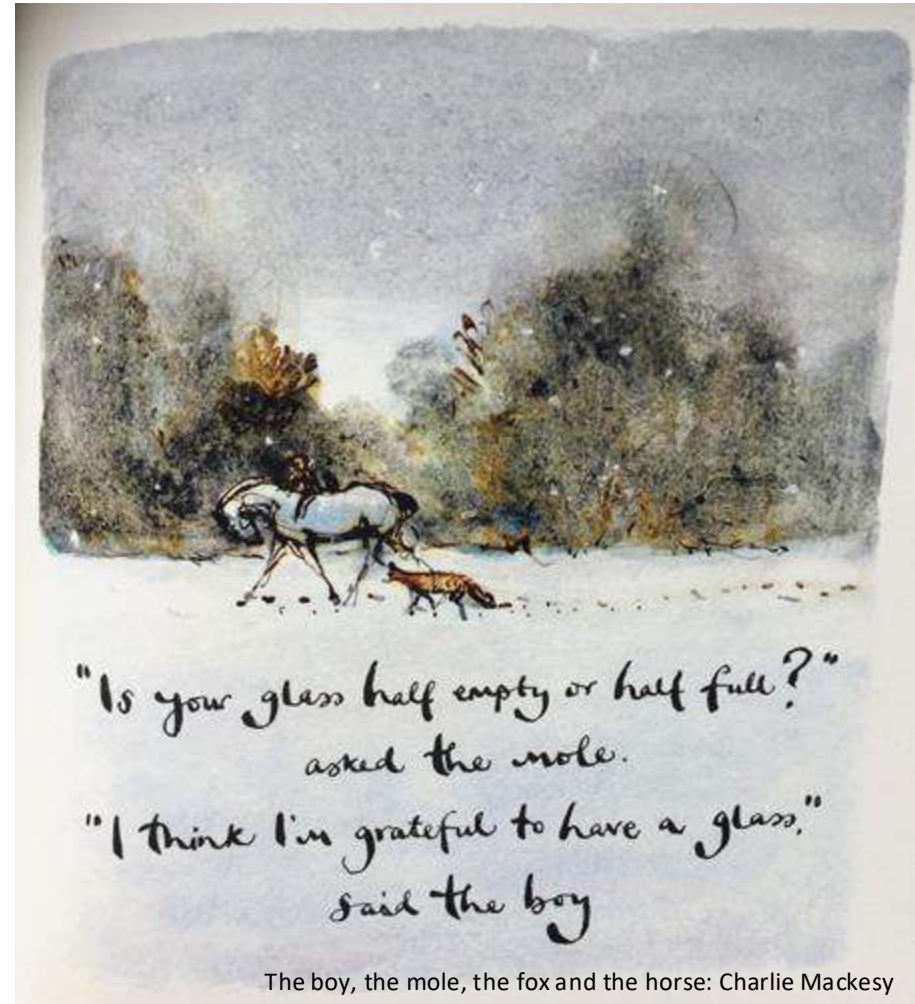 "Is your glass half empty or half full?"
asked the mole.
"I think I'm grateful to have a glass."
said the boy
The boy, the mole, the fox and the horse: Charlie Mackesy